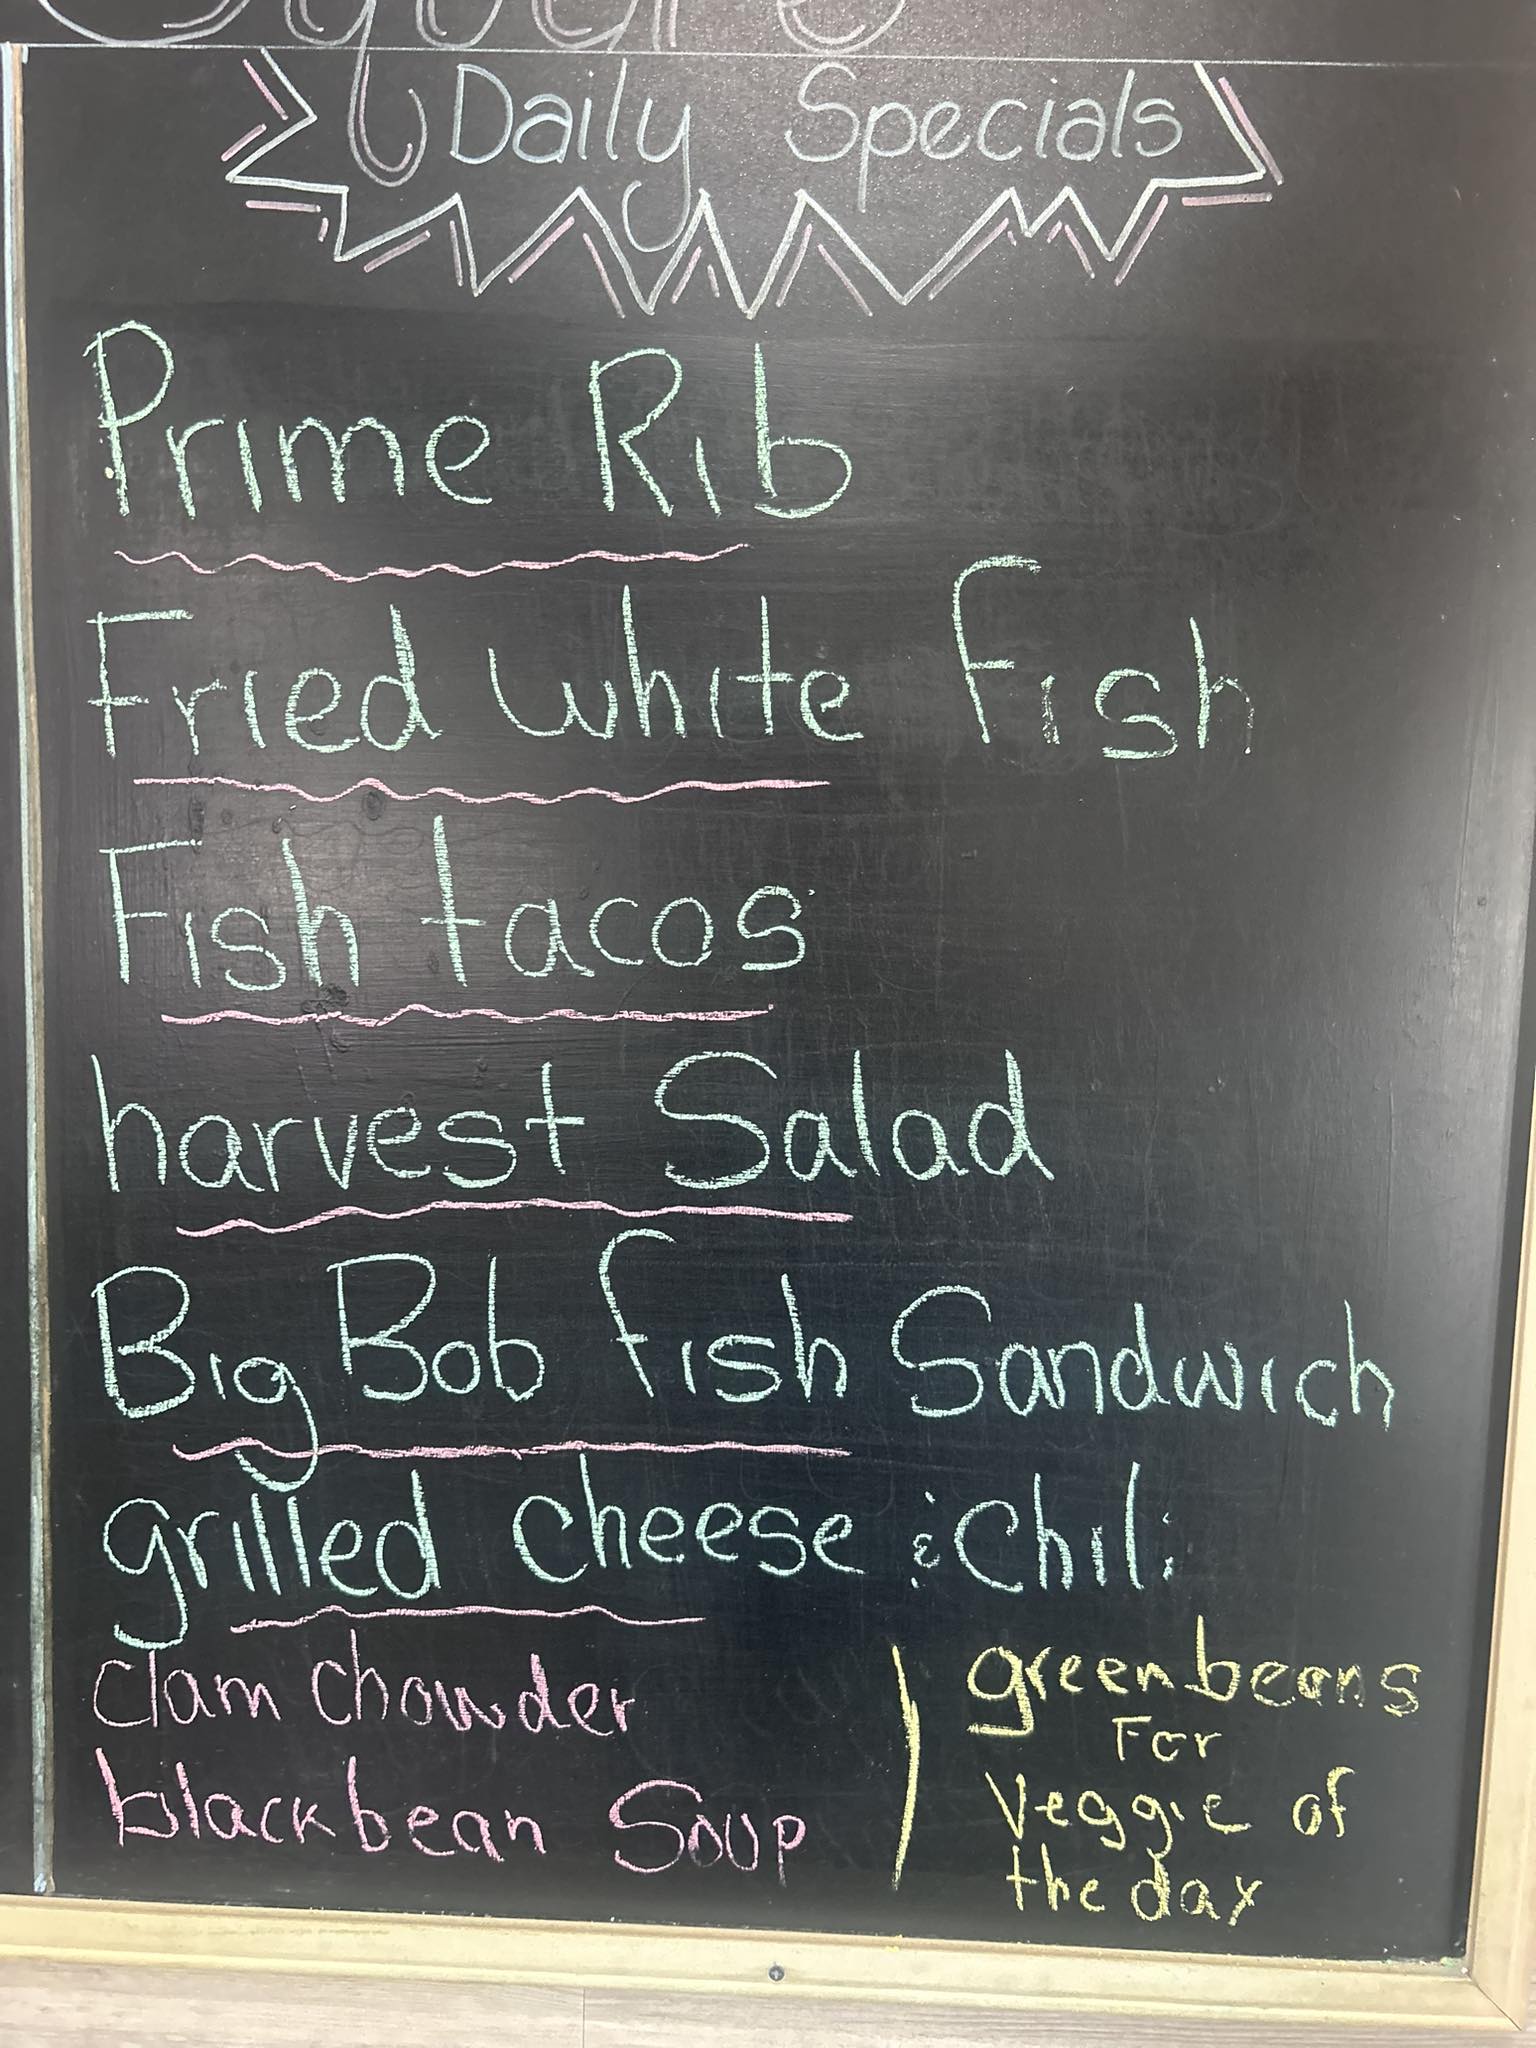 Daily Specials
Prime Rib
Fried white Fish
Fish tacos
harvest Salad
Big Bob fish Sandwich
grilled cheese & Chili
clam chowder
blackbean Soup
greenbeans
For
Veggie of
the day